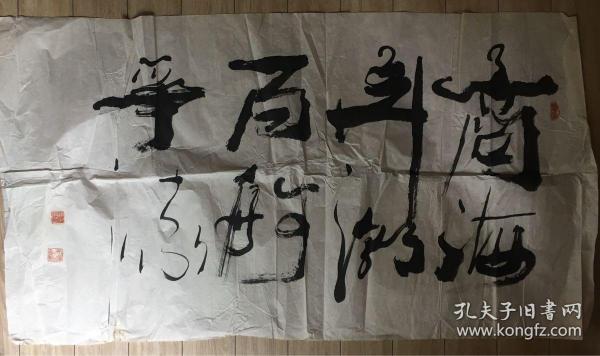 商海
弄潮
百舸
争流
孔夫子旧书网
www.kongfz.com